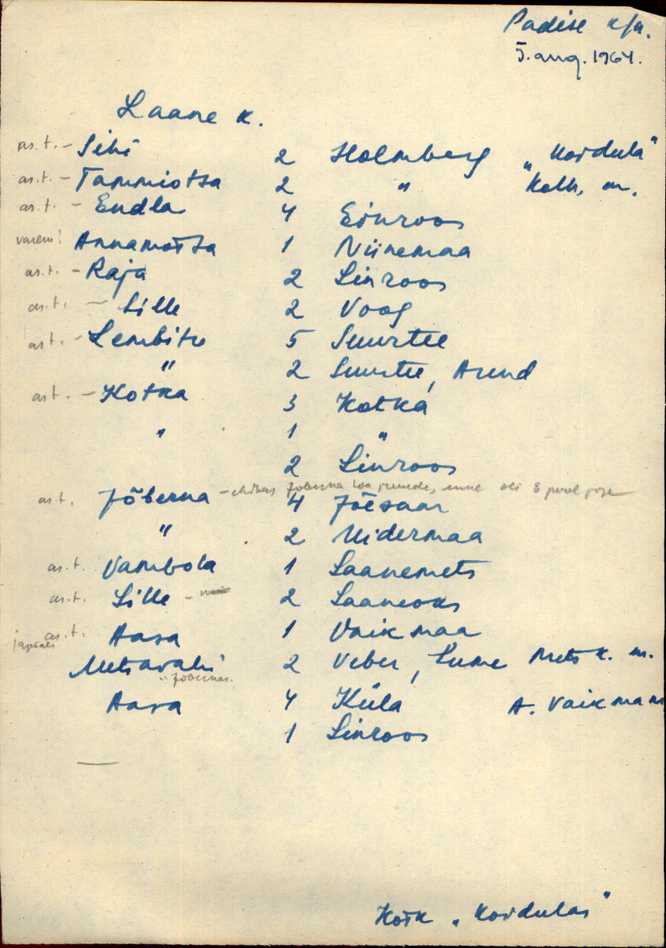 Padise k/n.
5. aug. 1964.
Laane k.
as. t. - Sihi 2 Holmberg „Kordula"
as. t. - Tammiotsa 2 " Kolh. m.
as. t. - Endla 4 Eonroos
varem! Annamõtsa 1 Niinemaa
as. t. - Raja 2 Linroos
as. t. - Lille 2 Voog
as. t. - Lembitu 5 Suurtee
" 2 Suurtee, Arund
as. t. - Kotka 3 Kotka
" 1 "
2 Linroos
as. t. Jõberna - Jõberna 4 Jõesaar
" 2 Uidermaa
as. t. Vambola 1 Laanemets
as. t. Lille - 2 Laaneoks
as. t. Aasa 1 Vaikmaa
Metsavahi 2 Veber, Lume Metsk. m.
Aasa 4 Küla A. Vaikmaa
1 Linroos
Kõik „Kordulas"